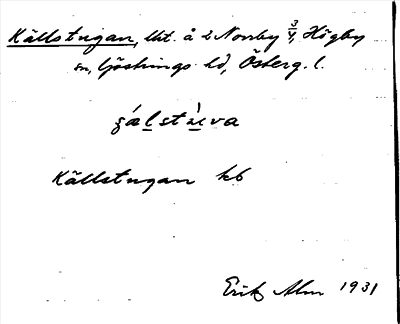 Källstugan, lht. å 2 Norrby 3/4, Högby
sn, Göstrings hd, Österg. l.
gálstùva
Källstugan kb
Erik Alm 1931